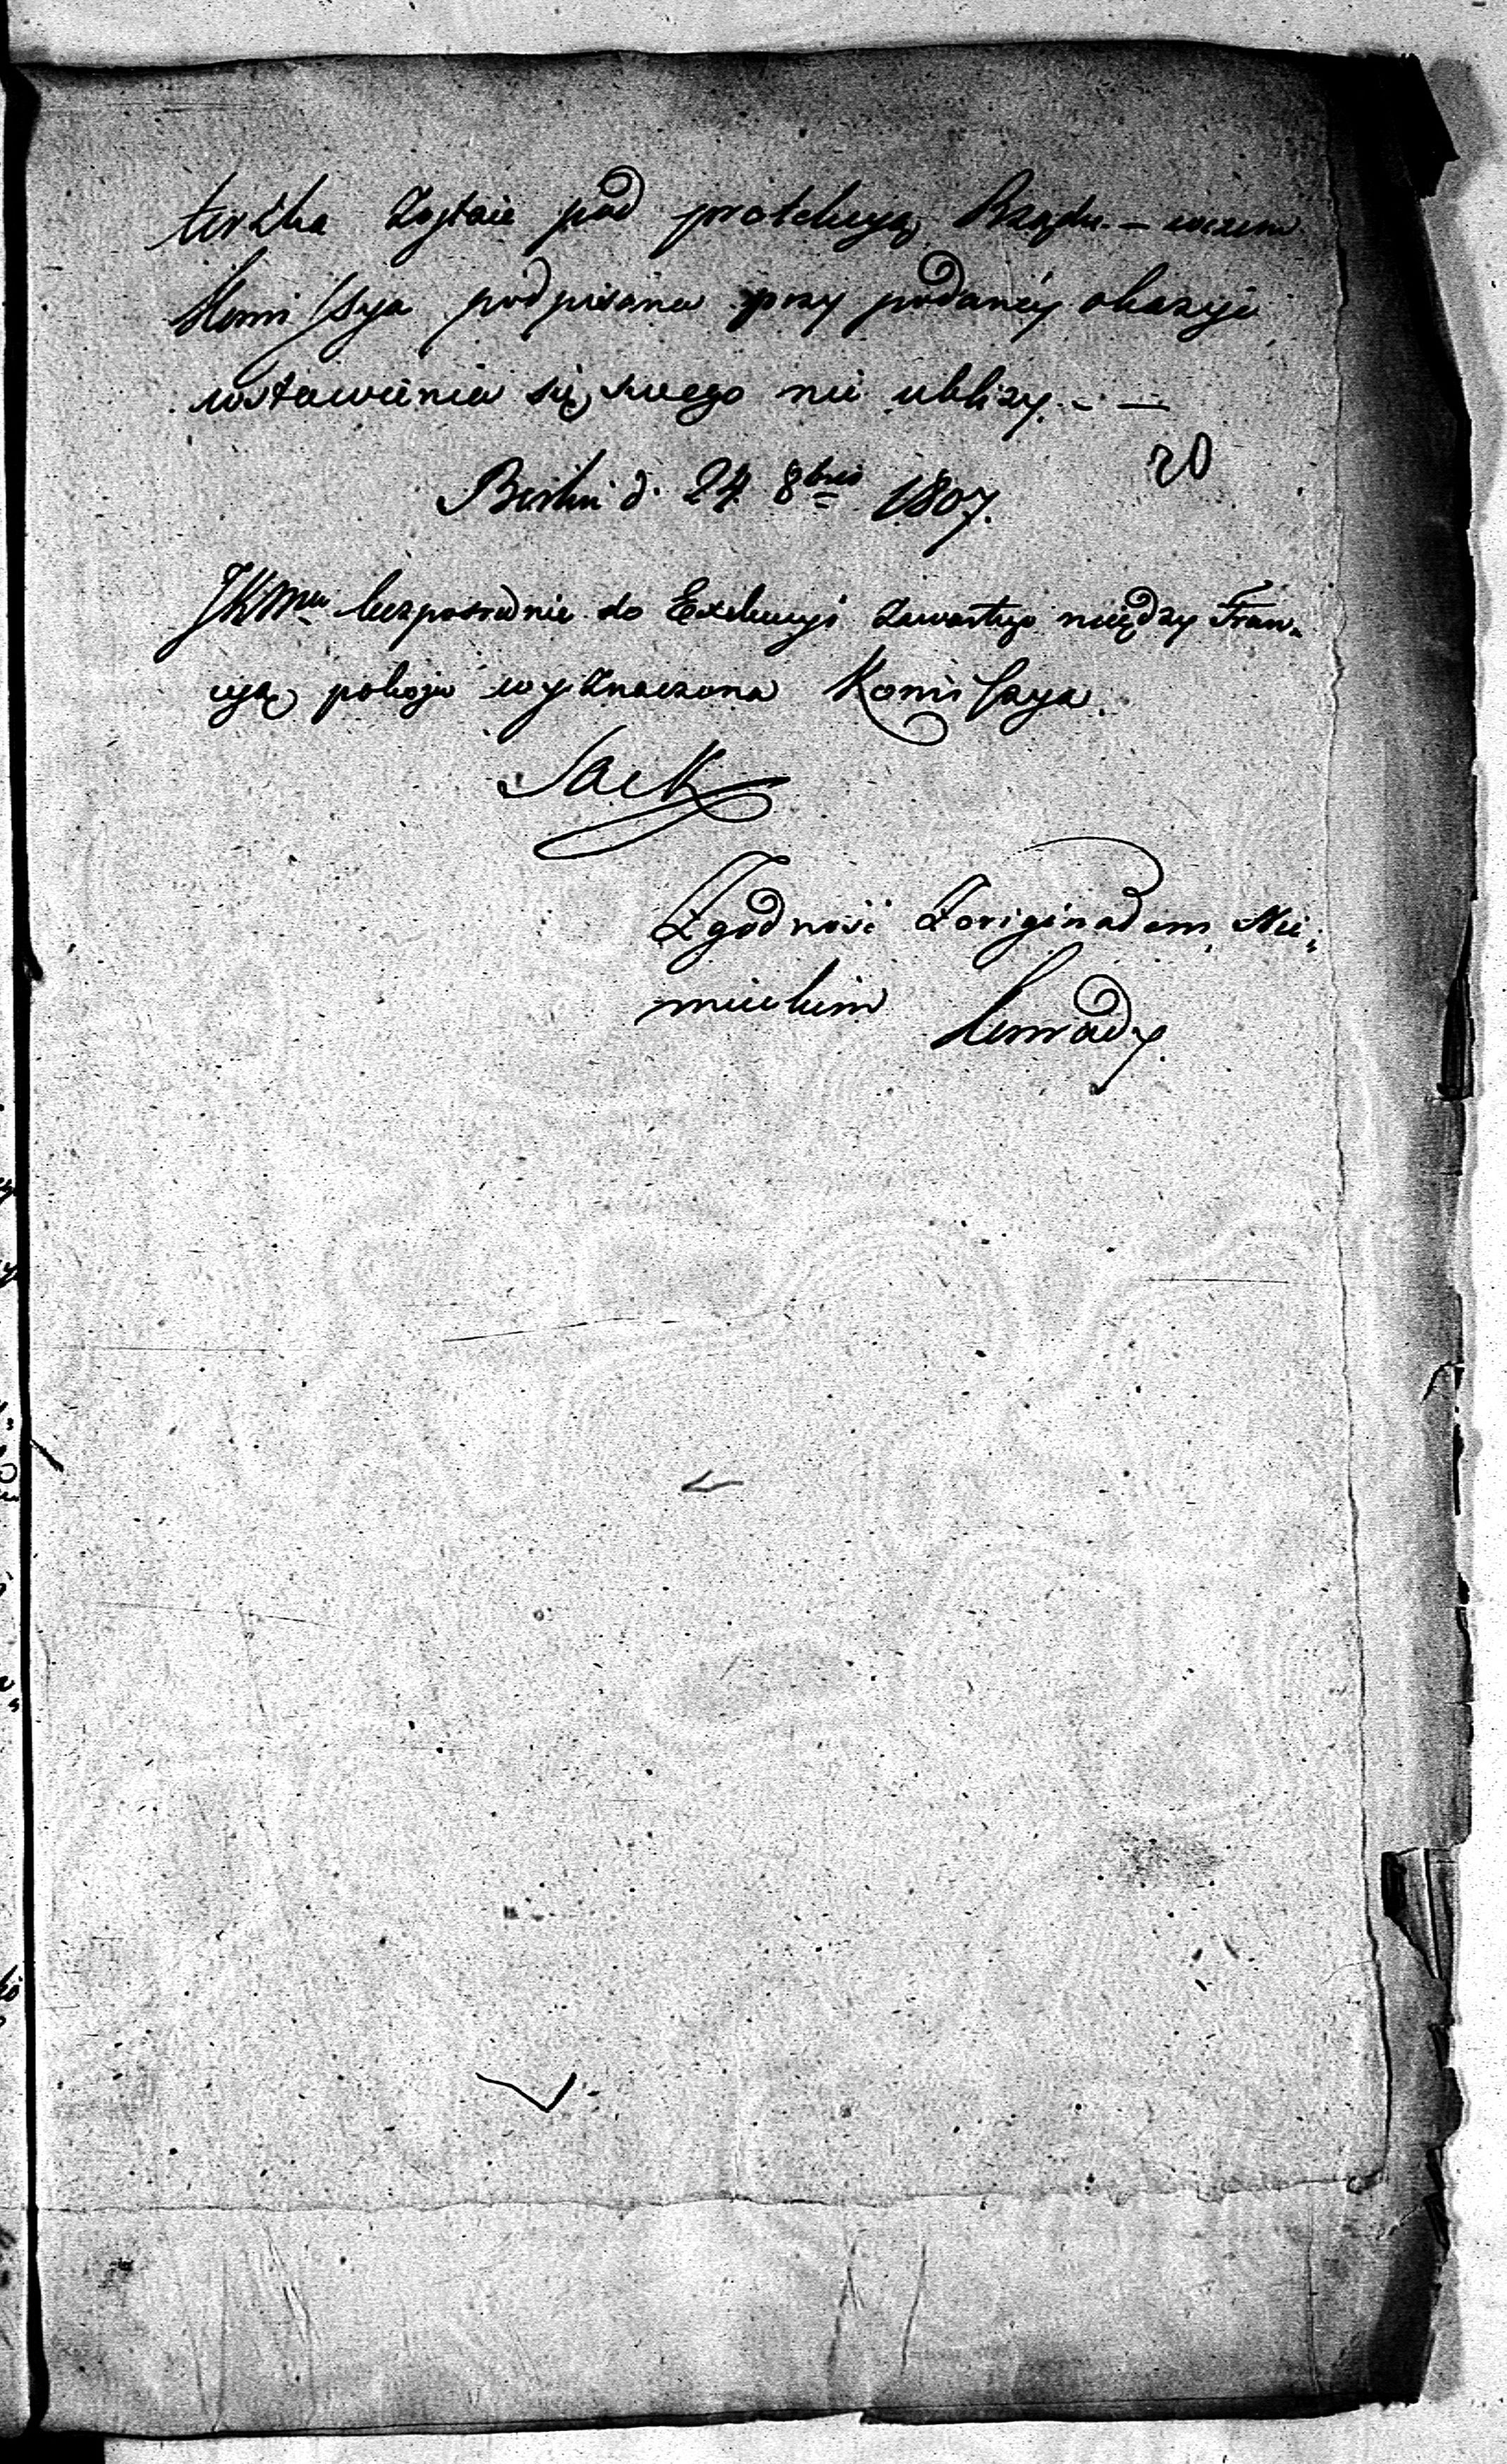 terźka zostaie pod protekcyą Rządu. – wczem
Komissya podpisana przy podanéy okazyi
wstawienia się swego nie ubliży. – –
20
Berlin d. 24 8bris 1807.
JKMci bezposrednie do Exekucyi zawartego między Fran-
cyą pokoju wyznaczona Komissya.
Sack
Zgodność Z originałem Nie-
mieckim Conrady.